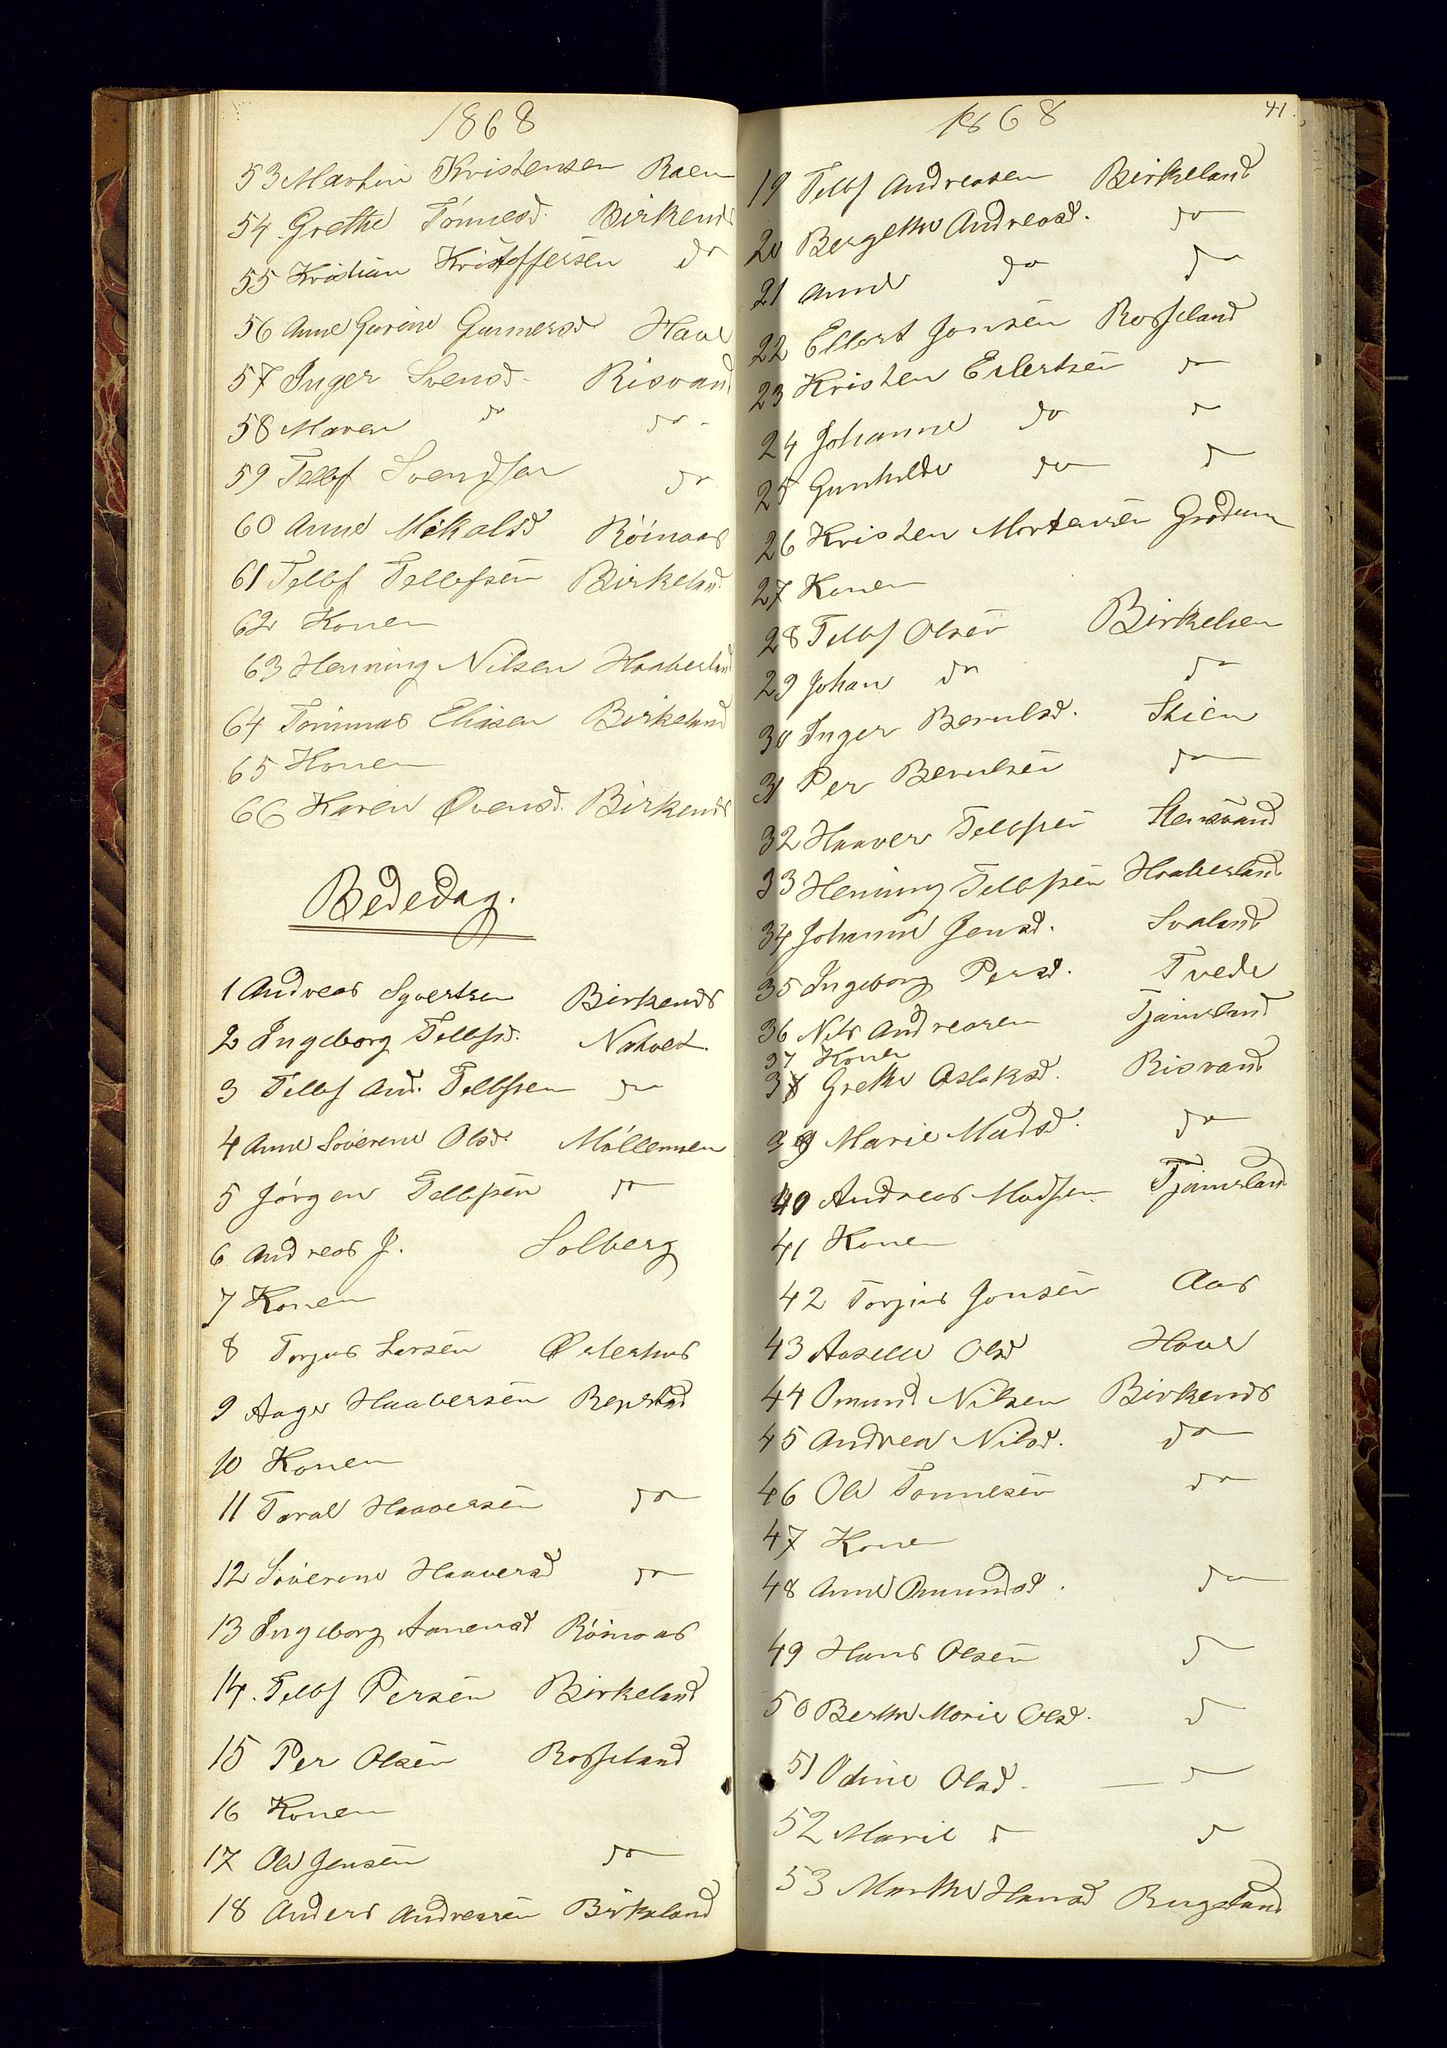 1868
53 Martin Kristensen Roen
54 Grethe Tönnesd. Birkends
55 Kristian Kristoffersen do
56 Anne Gurine Gunnersd Haav
57 Inger Svensd. Risvand
58 Maren do do
59 Tellef Svendsen do
60 Anne Mikalsd Röinaas
61 Tellef Tellefsen Birkeland
62 Konen
63 Henning Nilsen Haaberland
64 Tommas Eliasen Birkeland
65 Konen
66 Karen Ovensd. Birkends
Bededag.
1 Andreas Syvertsen Birkends
2 Ingeborg Tellefsd. Natvet
3 Tellef And. Tellefsen do
4 Anne Söverene Olsd. Möllemoen
5 Jörgen Tellefsen do
6 Andreas J. Solberg
7 Konen
8 Torjus Larsen Østerhus
9 Aage Haaversen Repstad
10 Konen
11 Taral Haaversen do
12 Söverene Haaversd do
13 Ingeborg Aanensd Röinaas
14. Tellef Persen Birkeland
15 Per Olsen Rosseland
16 Konen
17 Ole Jensen do
18 Anders Andreasen Birkeland
1868 41.
19 Tellef Andreasen Birkeland
20 Bergethe Andreasd. do
21 Anne do do
22 Ellert Jonsen Rosseland
23 Kristen Eilertsen do
24 Johanne do do
25 Gunhilde do do
26 Kristen Mortensen Grödum
27 Konen
28 Tellef Olsen Birkelien
29 Johan do do
30 Inger Berulsd. Skien
31 Per Berulsen do
32 Haaver Tellefsen Stensvand
33 Henning Tellefsen Haaberland
34 Johanne Jensd. Svaland
35 Ingeborg Persd. Tvede
36 Nils Andreasen Tjamsland
37 Konen
38 Grethe Aslaksd. Risvand
39 Marie Madsd. do
40 Andreas Madsen Tjamsland
41 Konen
42 Torjus Jonsen Aas
43 Aaselle Olsd Haav
44 Omund Nilsen Birkends
45 Andrea Nilsd. do
46 Ole Tönnesen do
47 Konen
48 Anne Omundsd. do
49 Hans Olsen do
50 Berthe Marie Olsd. do
51 Odine Olsd. — do
52 Marie do do
53 Marthe Hansd Rugsland